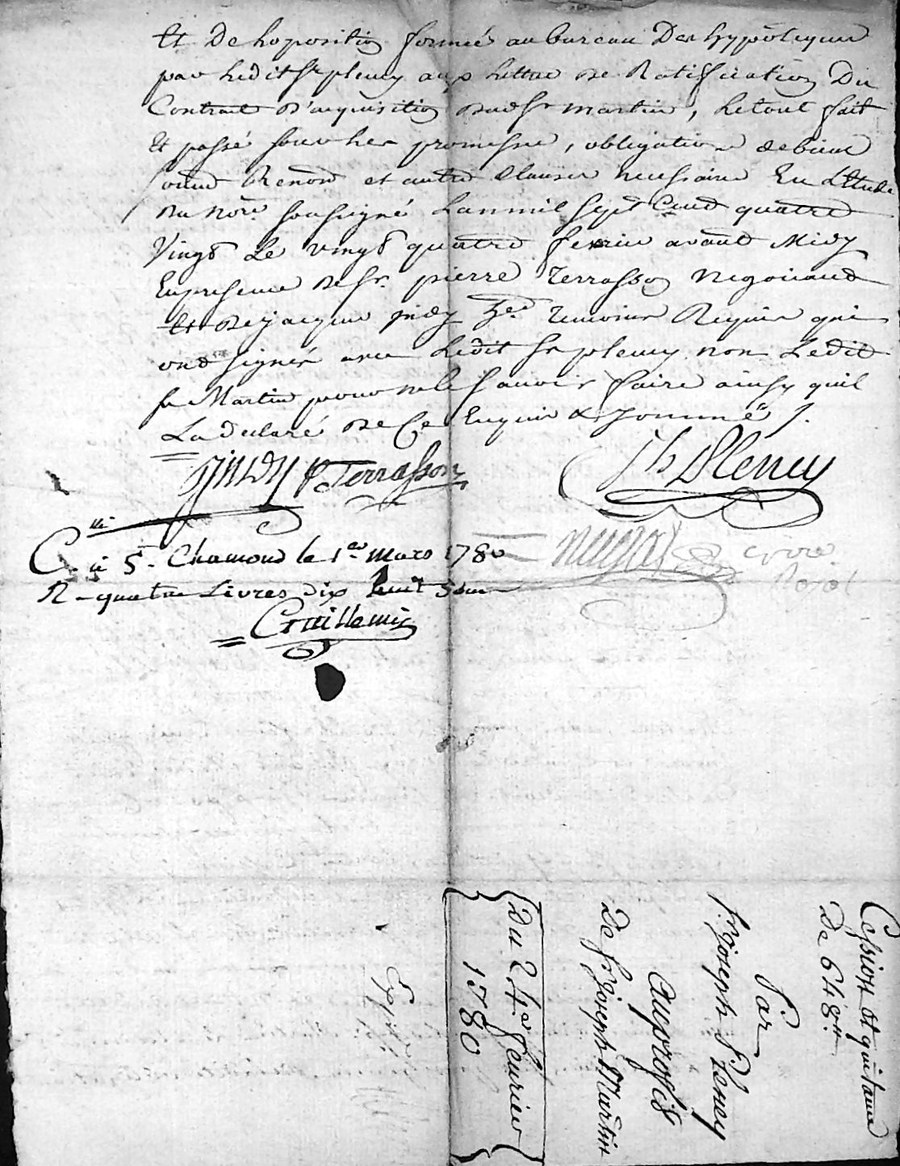 Et De loposition formée au bureau Des hypoteques
par ledit Sr pleney aux lettre de Ratiffication Du
Contrat D'acquisition dudt Sr martin, le tout fait
Et passé sous les promesse, obligation de bien
renon et autre Clauses necessaire En L'Etude
du Nore soussigné Lan mil sept Cend quatre
Vingt Le vingt quatre fevrier avant Midy
En presence de Sr. pierre Terrasson Negotiand
Et de jacques jurdy temoins Requis qui
ond signés avec Ledit Sr pleney non Ledit
Sr Martin pour ne le savoir faire ainsy quil
La declaré de Ce Enquis & sommé /.
Jurdy P Terrasson
Jh Pleney
Clle à St. Chamond le 1er mars 1780
R - quatre Livres dix huit Sous
Royal
Cession et quittance
De 648 lt
Par
Sr joseph Pleney
Auproffit
De Sr joseph Martin
Du 24e feuvrier
1780
Expp.